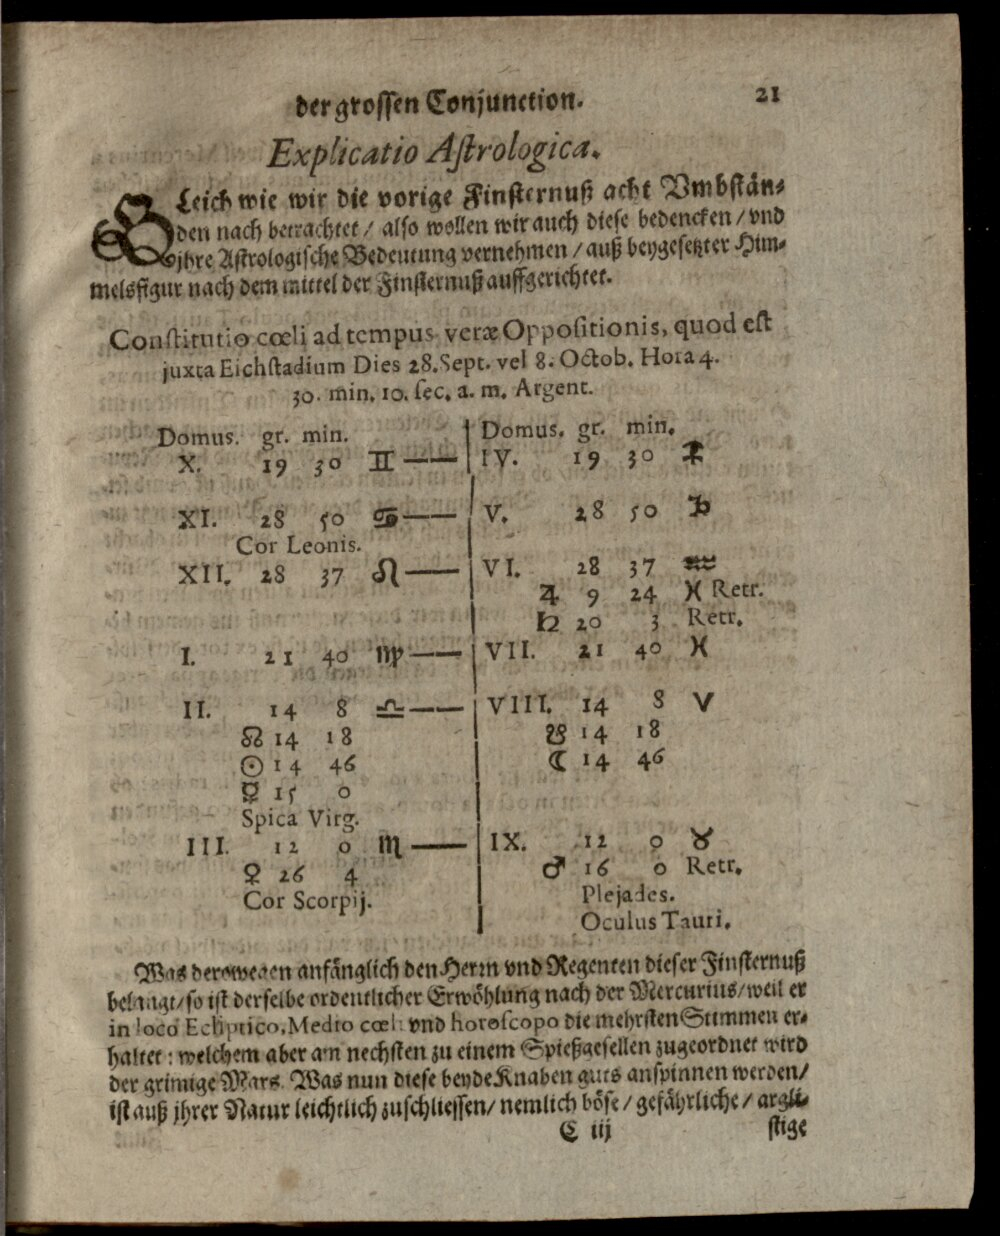 der grossen Conjunction. 21
Explicatio Astrologica.
GLeich wie wir die vorige Finsternuß acht Vmbstän-
den nach betrachtet / also wollen wir auch diese bedencken / vnd
jhre Astrologische Bedeutung vernehmen / auß beygesetzter Him-
melsfigur nach dem mittel der Finsternuß auffgerichtet.
Constitutio cœli ad tempus veræ Oppositionis, quod est
juxta Eichstadium Dies 28. Sept. vel 8. Octob. Hora 4.
30. min. 10. sec. a. m. Argent.
Domus. gr. min. Domus. gr. min.
X. 19 30 ♊ —— IV. 19 30 ♐
XI. 28 50 ♋ —— V. 28 50 ♑
Cor Leonis.
XII. 28 37 ♌ —— VI. 28 37 ♒
♃ 9 24 ♓ Retr.
♄ 20 3 Retr.
I. 21 40 ♍ —— VII. 21 40 ♓
II. 14 8 ♎ —— VIII. 14 8 ♈
☊ 14 18 ☋ 14 18
☉ 14 46 ☾ 14 46
☿ 15 0
Spica Virg.
III. 12 0 ♏ —— IX. 12 0 ♉
♀ 26 4 ♂ 16 0 Retr.
Cor Scorpij. Plejades.
Oculus Tauri.
Was derowegen anfänglich den Herrn vnd Regenten dieser Finsternuß
belangt / so ist derselbe ordentlicher Erwöhlung nach der Mercurius / weil er
in loco Ecliptico, Medio cœli vnd horoscopo die mehrsten Stimmen er-
haltet : welchem aber am nechsten zu einem Spießgesellen zugeordnet wird
der grimige Mars. Was nun diese beyde Knaben guts anspinnen werden /
ist auß jhrer Natur leichtlich zuschliessen / nemlich böse / gefährliche / argli-
C iij stige